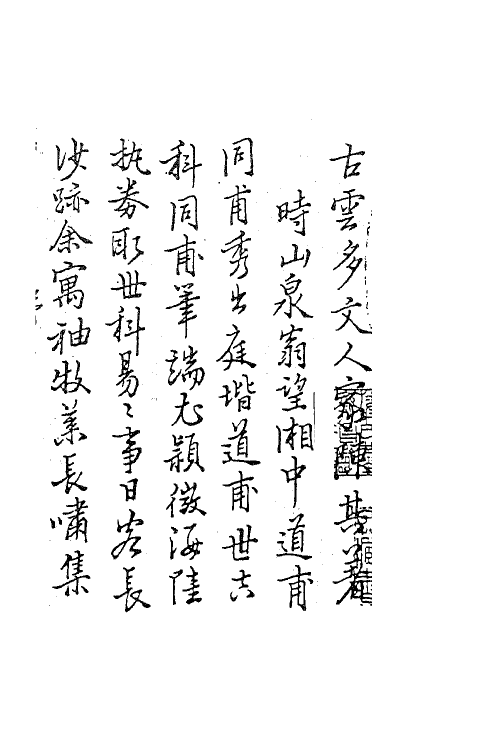 古雲多文人家陳其著
時山泉翁望湘中道甫
同甫秀出庭堦道甫世其
科同甫筆端尤穎徵海陸
執券取世科易〻事日客長
沙跡余寓袖牧萊長嘯集